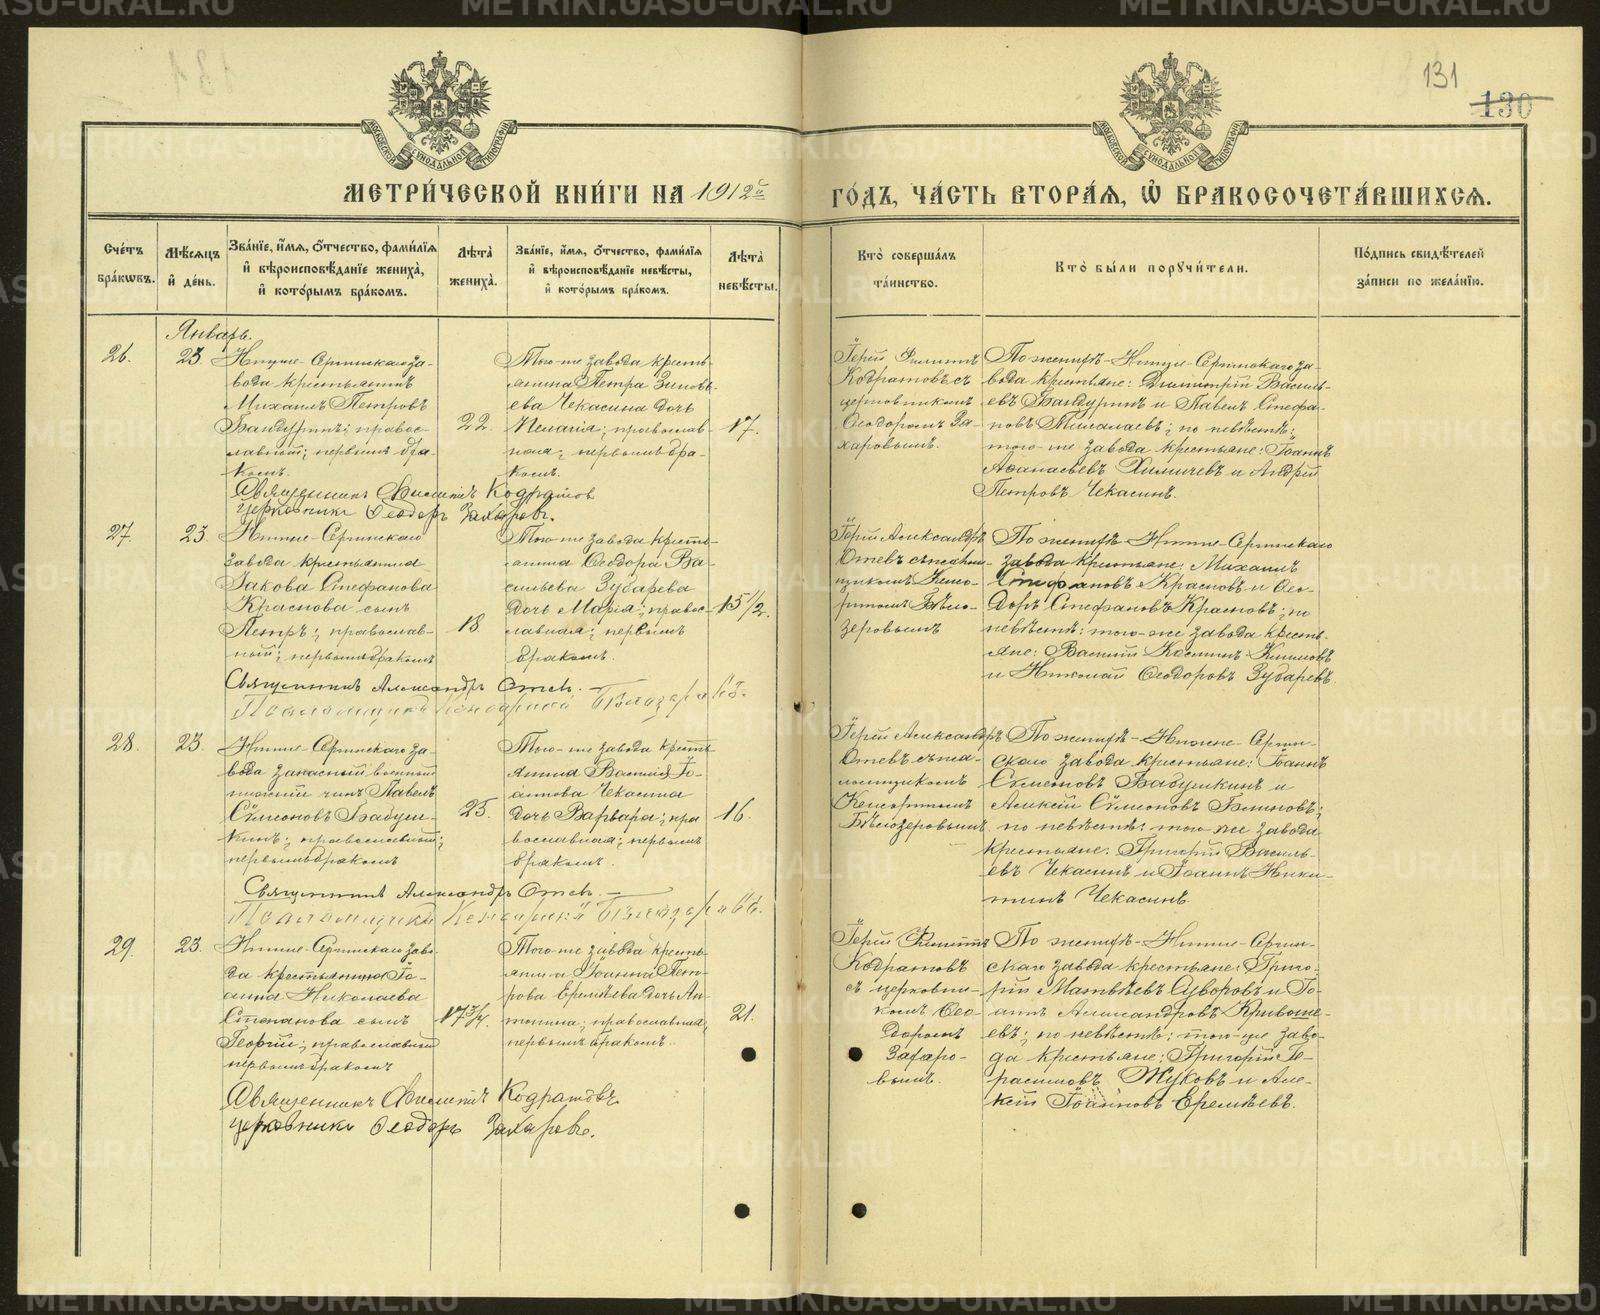 131
130
МОСКОВСКОЙ СѴНОДАЛЬНОЙ ТИПОГРАФІИ
МОСКОВСКОЙ СѴНОДАЛЬНОЙ ТИПОГРАФІИ
МЕТРИ́ЧЕСКОЙ КНИ́ГИ НА 1912й ГО́ДЪ, ЧА́СТЬ ВТОРА́Я, Ѽ БРАКОСОЧЕТА́ВШИХСЯ.
Сче́тъ бра́кѡвъ.
Мѣ́сяцъ и҆ де́нь.
Зва́нїе, и҆́мя, ѻ҆́тчество, фами́лїя и҆ вѣроисповѣ́данїе жениха̀, и҆ кото́рымъ бра́комъ.
Лѣ́та жениха̀.
Зва́нїе, и҆́мя, ѻ҆́тчество, фами́лїя и҆ вѣроисповѣ́данїе невѣ́сты, и҆ кото́рымъ бра́комъ.
Лѣ́та невѣ́сты.
Кто̀ соверша́лъ та́инство.
Кто̀ бы́ли порꙋчи́тели.
По́дпись свидѣ́телей за́писи по жела́нїю.
Январь.
26.
23
Нижне-Сергинскаго за-
вода крестьянинъ
Михаилъ Петровъ
Бандуринъ; правос-
лавный; первымъ бра-
комъ.
22.
Того-же завода кресть-
янина Петра Зиновь-
ева Чекасина дочь
Пелагія; православ-
ная; первымъ бра-
комъ.
17.
Іерей Филиппъ
Кодратовъ съ
церковникомъ
Ѳеодоромъ За-
харовымъ.
По женихѣ-Нижне-Сергинскаго за-
вода крестьяне: Димитрій Василь-
евъ Бандуринъ и Павелъ Стефа-
новъ; по невѣстѣ:
того-же завода крестьяне: Іоаннъ
Аѳанасьевъ Химичевъ и Андрей
Петровъ Чекасинъ.
Священникъ Филиппъ Кодратов
Церковникъ Ѳеодоръ Захаровъ.
27.
23.
Нижне-Сергинскаго
завода крестьянина
Іакова Стефанова
Краснова сынъ
Петръ; православ-
ный; первымъ бракомъ
18.
Того-же завода кресть-
янина Ѳеодора Ва-
сильева Зубарева
дочь Марія; правос-
лавная; первымъ
бракомъ.
15½.
Іерей Александръ
Отевъ съ псалом-
щикомъ Кенса-
риномъ Бѣло-
зеровымъ
По женихѣ-Нижне-Сергинскаго
завода крестьяне: Михаилъ
Стефановъ Красновъ и Ѳео-
доръ Стефановъ Красновъ; по
невѣстѣ: того-же завода кресть-
яне: Василій Косминъ
и Николай Ѳеодоровъ Зубаревъ.
Священникъ Александръ Отевъ.
Псаломщикъ Кенсаринъ Бѣлозеровъ.
28.
23.
Нижне-Сергинскаго за-
вода запасный военный
нижній чинъ Павелъ
Сѵмеоновъ Бабуш-
кинъ; православный;
первымъ бракомъ
25.
Того-же завода кресть-
янина Василія Іо-
аннова Чекасина
дочь Варвара; пра-
вославная; первымъ
бракомъ.
16.
Іерей Александръ
Отевъ съ пса-
ломщикомъ
Кенсариномъ
Бѣлозеровымъ
По женихѣ-Нижне-Сергин-
скаго завода крестьяне: Іоаннъ
Сѵмеоновъ Бабушкинъ и
Алексій Сѵмеоновъ Блиновъ;
по невѣстѣ: того-же завода
крестьяне: Григорій Василь-
евъ Чекасинъ и Іоаннъ Ники-
тинъ Чекасинъ.
Священникъ Александръ Отевъ.
Псаломщикъ Кенсаринъ Бѣлозеровъ.
29.
23.
Нижне-Сергинскаго заво-
да крестьянина Іо-
анна Николаева
Степанова сынъ
Георгій; православный
первымъ бракомъ
17¾.
Того-же завода кресть-
янина Іоанна Пет-
рова Еремѣева дочь Ан-
тонина; православная;
первымъ бракомъ.
21.
Іерей Филиппъ
Кодратовъ
съ церковни-
комъ Ѳео-
доромъ
Захаро-
вымъ.
По женихѣ-Нижне-Сергин-
скаго завода крестьяне: Григо-
рій Матвѣевъ Суворовъ и Іо-
аннъ Александровъ Кривоше-
евъ; по невѣстѣ: того-же заво-
да крестьяне: Григорій Ге-
расимовъ Жуковъ и Але-
ксій Іоанновъ Еремѣевъ.
Священникъ Филиппъ Кодратовъ
Церковникъ Ѳеодоръ Захаровъ.
METRIKI.GASO-URAL.RU